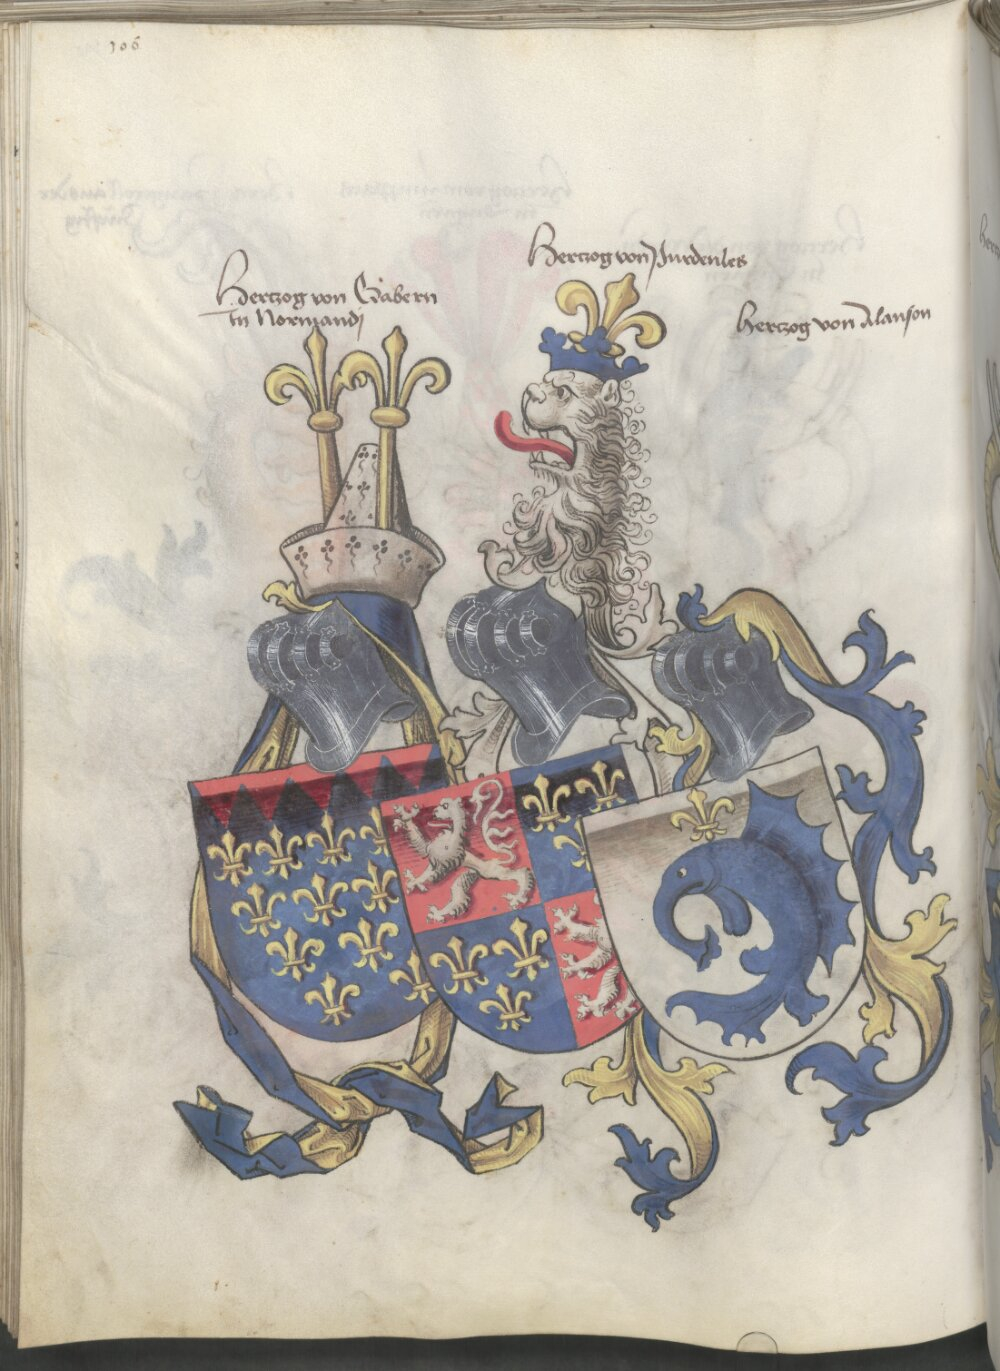 106
Hertzog von Gabern
In Normandj
Hertzog von Purdenles
Hertzog von Alanson